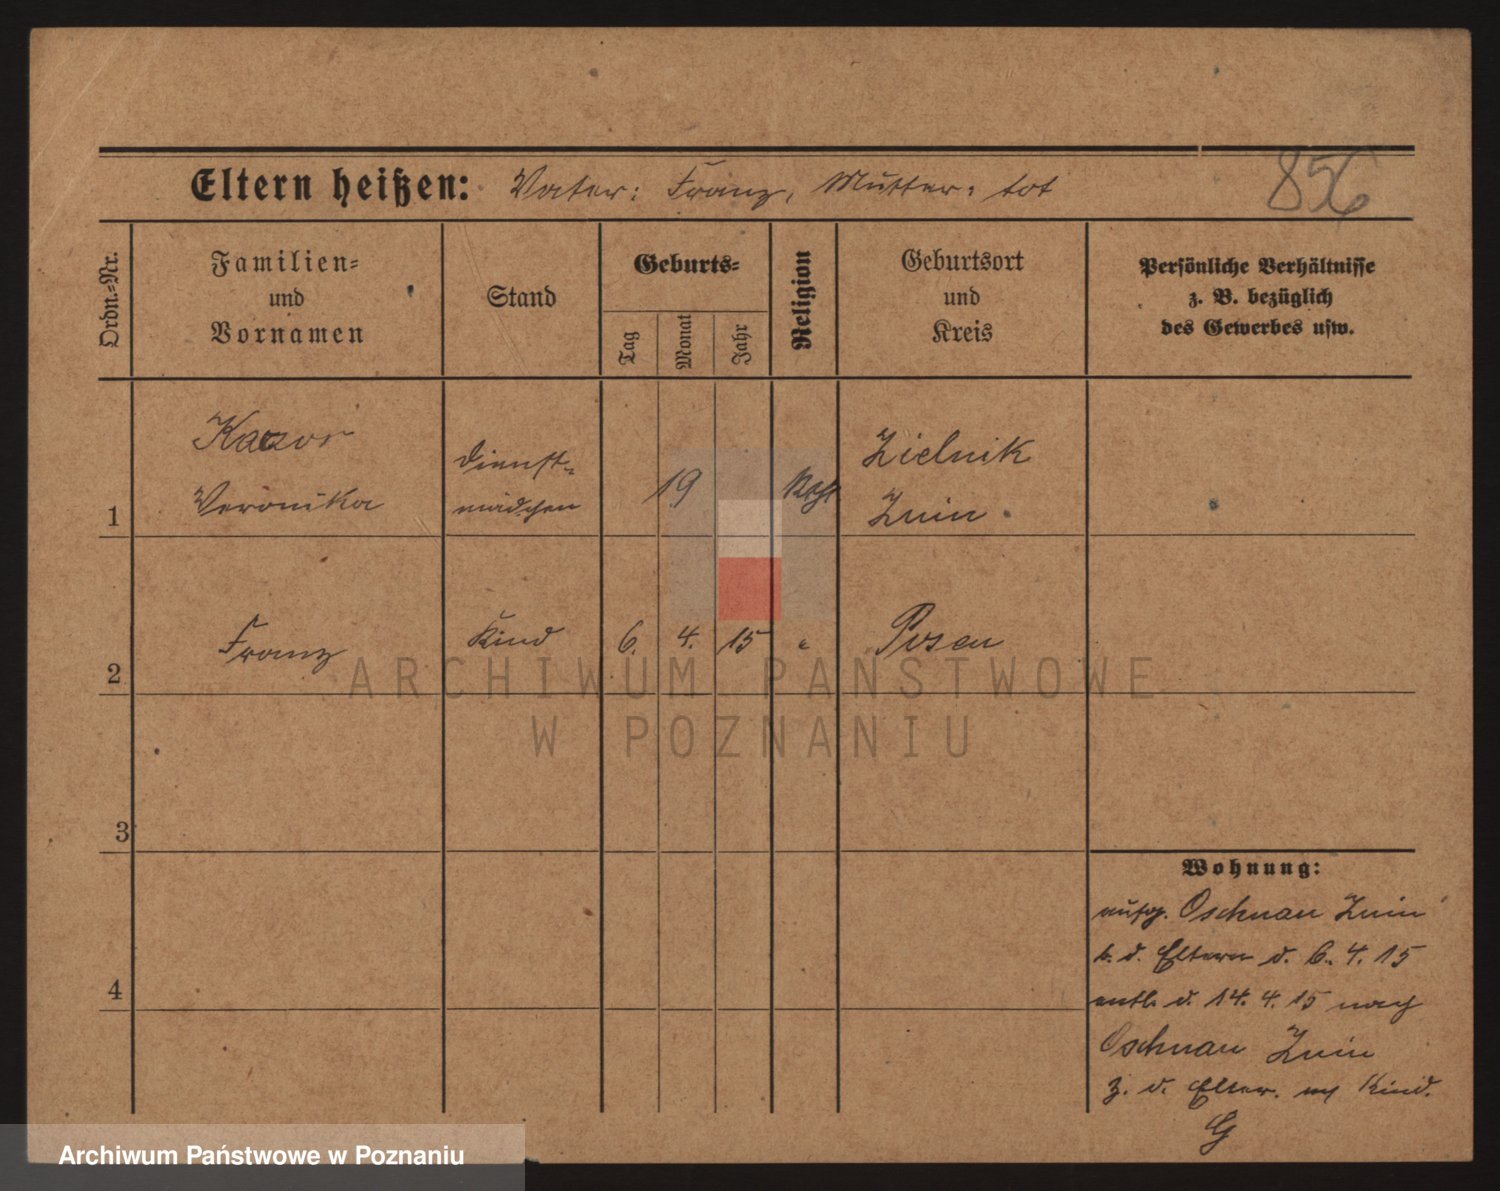 Eltern heißen: Vater: Franz, Mutter: tot
856
Ordn.-Nr.
Familien-
und
Vornamen
Stand
Geburts-
Tag
Monat
Jahr
Religion
Geburtsort
und
Kreis
Persönliche Verhältnisse
z. B. bezüglich
des Gewerbes usw.
1
Veronika
Dienst-
mädchen
19
Kth
Zielnik
Znin
2
Franz
Kind
6. 4. 15
"
Posen
3
4
Wohnung:
aufg. Oschnau Znin
b. d. Eltern d. 6. 4. 15
entl. d. 14. 4. 15 nach
Oschnau Znin
z. d. Elter. m Kind.
G
ARCHIWUM PAŃSTWOWE
W POZNANIU
Archiwum Państwowe w Poznaniu